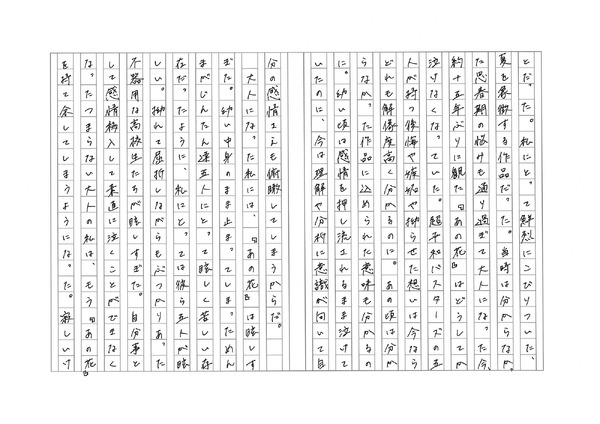 とだった。私にとって鮮烈にこびりついた、
夏を象徴する作品だった。当時は分からなか
った思春期の悩みも通り過ぎて大人になった今、
約十五年ぶりに観た『あの花』はどうしてか
泣けなくなっていた。超平和バスターズの五
人が持つ後悔や嫉妬や拗らせた想いは今なら
どれも解像度高く分かるのに。あの頃は分か
らなかった作品に込められた意味も分かるの
に。幼い頃は感情を押し流されるまま泣けて
いたのに、今は理解や分析に意識が向いて自
分の感情さえも俯瞰してしまうからだ。
大人になった私には、『あの花』は眩しす
ぎた。幼い中身のまま止まってしまっためん
まがじんたん達五人にとって眩しく苦しい存
在だったように、私にとっては彼ら五人が眩
しい。拗れて屈折しながらもぶつかりあった
不器用な高校生たちが眩しすぎた。自分事と
して感情移入して素直に泣くことができなく
なったつまらない大人の私は、もう『あの花』
を持て余してしまうようになった。寂しいけ